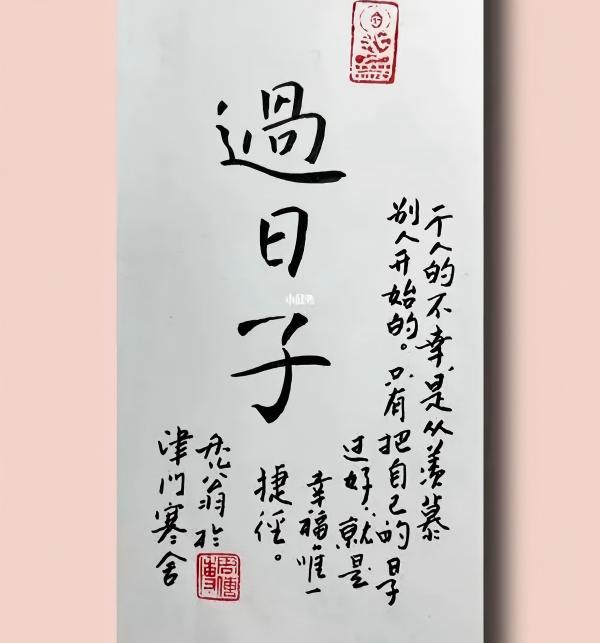 過日子
一个人的不幸是从羡慕
别人开始的。只有把自己的日子
过好,就是
幸福唯一
捷径。
翁於
津门寒舍
小红书